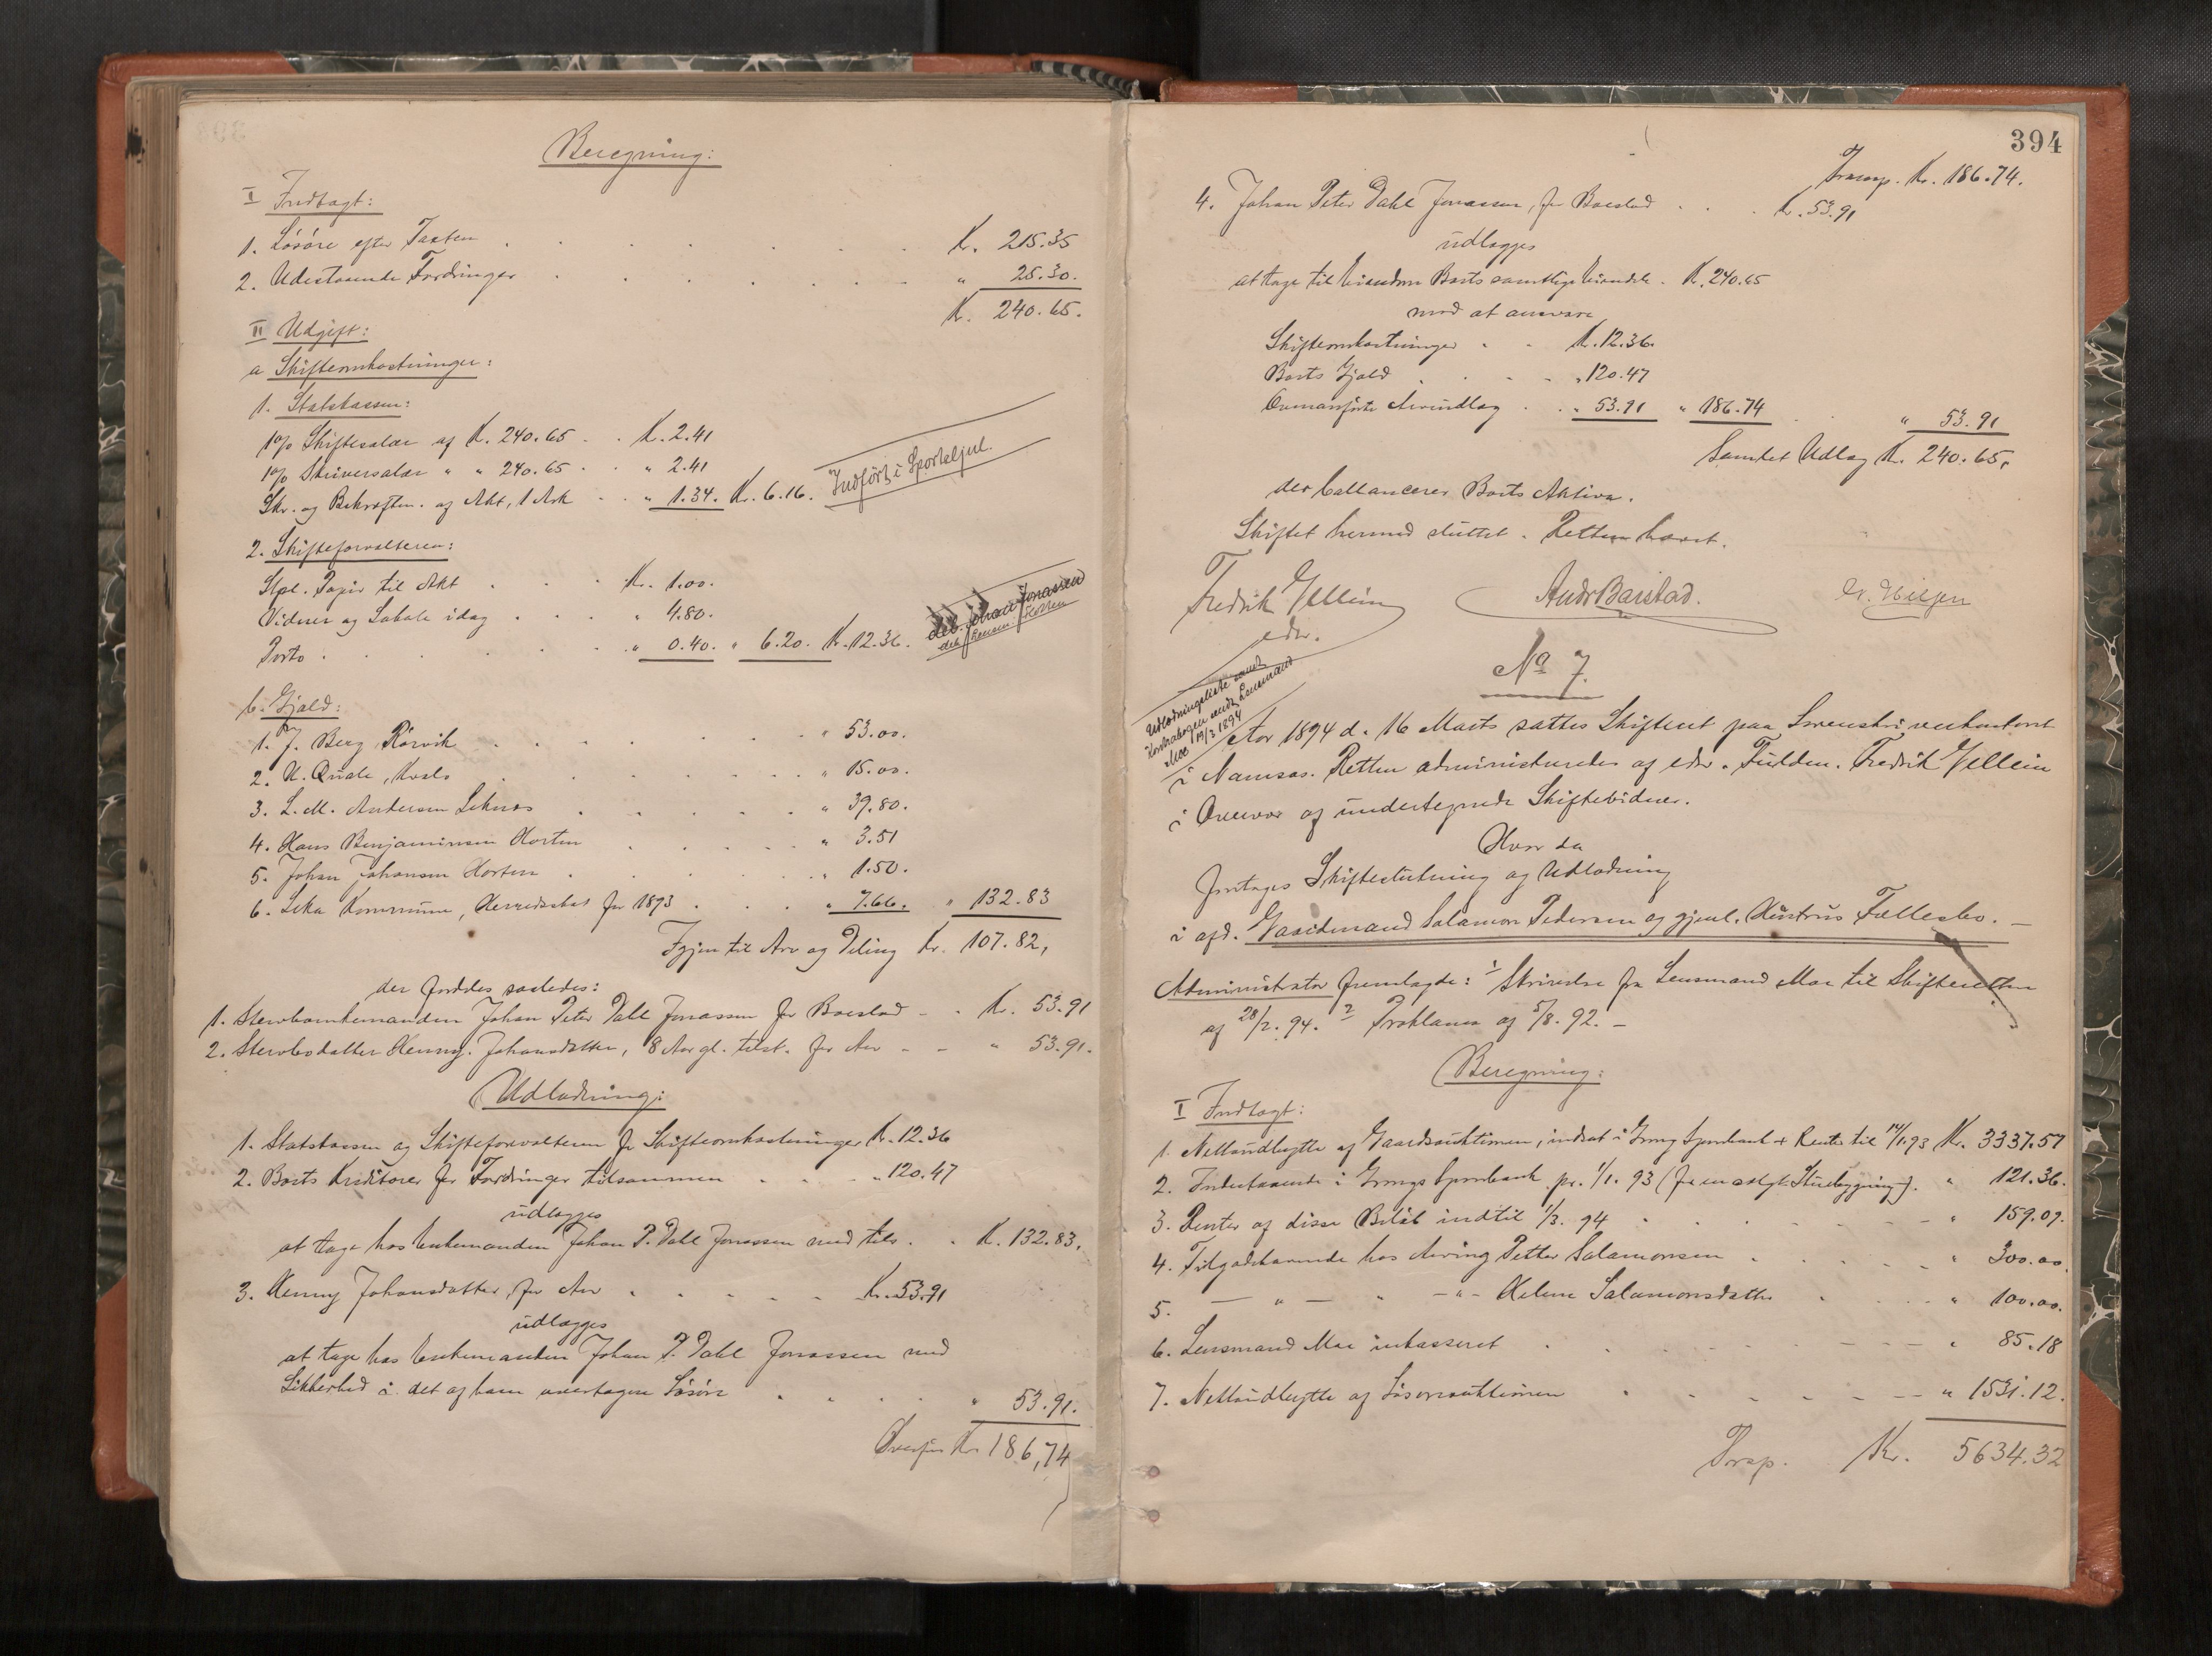 Beregning:
I Indtægt:
1. Løsøre efter Taxten . . . Kr. 215.35
2. Udestaaende Fordringer . . . " 25.30.
Kr. 240.65.
II Udgift:
a Skifteomkostninger:
1. Statskassen:
1% Skiftesalær af K. 240.65 . . K. 2.41
1% Skriversalær " " 240.65 . . " 2.41
Skr. og Bekræften. af Akt, 1 Ark . . " 1.34. Kr. 6.16.
Indført i Sporteljnl.
2. Skifteforvalteren:
Stpl. Papir til Akt . . . Kr. 1.00.
Vidner og Lokale idag . . . " 4.80.
Porto . . . " 0.40. " 6.20. Kr. 12.36.
deb. Johan Jonassen
b. Gjæld:
1. J. Berg Rørvik . . . " 53.00.
2. N. Qvale, . . . " 15.00.
3. L. M. Andersen Leknes . . . " 39.80.
4. Hans Benjaminsen Horten . . . " 3.51
5. Johan Johansen Horten . . . " 1.50.
6. Leka Kommune, Herredsskat for 1893 . . . " 7.66. " 132.83
Igjen til Arv og Deling Kr. 107.82,
der fordeles saaledes:
1. Stervboenkemanden Johan Peter Dahl Jonassen for Boeslod - . Kr. 53.91
2. Stervbodatter Henny Johansdatter, 8 Aar gl. tilst. for Arv - - " 53.91.
Udlodning:
1. Statskassen og Skifteforvalteren for Skifteomkostninger K. 12.36
2. Boets Kreditorer for Fordringer tilsammen . . . " 120.47
udlægges
at tage hos Enkemanden Johan P. Dahl Jonassen med tils. . K. 132.83.
3. Henny Johansdatter, for Arv . . . Kr. 53.91
udlægges
at tage hos Enkemanden Johan P. Dahl Jonassen med
Sikkerhed i det af ham overtagne Løsøre . . . " 53.91.
Overføres Kr. 186,74
394
Transp. Kr. 186.74.
4. Johan Peter Dahl Jonassen, for Boeslod . . . K. 53.91
udlægges
at tage til Eiendom Boets samtlige Eiendele . K. 240.65
mod at ansvare
Skifteomkostninger . . K. 12.36.
Boets Gjæld . . . " 120.47
Ovenanførte Arveudlæg . . " 53.91 " 186.74 . " 53.91
Samlet Udlæg Kr. 240.65,
der ballancerer Boets Aktiva.
Skiftet hermed sluttet. Retten hævet.
Fredrik Gellein
edsv.
Andr Barstad.
No 7.
Udlodningsliste sendt
Moe 19/3 1894
Aar 1894 d. 16 Marts sattes Skifteret paa Sorenskriverkontoret
i Namsos. Retten administreredes af edsv. Fuldm. Fredrik Gellein
i Overvær af undertegnede Skiftevidner.
Hvor da
foretages Skifteslutning og Udlodning
i afd. Gaardmand Salamon Pedersen og gjenl. Hustrus Fællesbo. —
Administrator fremlagde: 1 Skrivelse fra Lensmand Moe til Skifteretten
af 28/2. 94. 2 Proklama af 5/8. 92. —
Beregning:
I Indtægt:
1. Nettoudbytte af Gaardsauktionen, indsat i Grong Sparebank + Renter til 14/1 93 Kr. 3337.57
2. Indestaaende i Grongs Sparebank pr. 1/1. 93 (for en solgt Stuebygning). " 121.36.
3. Renter af disse Beløb indtil 1/3. 94 . . . " 159.09.
4. Tilgodehavende hos Arving Petter Salamonsen . . . " 300.00.
5. — " — " — " — Helene Salamonsdatter . . . " 100.00.
6. Lensmand Moe inkasseret . . . " 85.18
7. Nettoudbytte af Løsøreauktionen . . . " 1531.12.
Transp. Kr. 5634.32